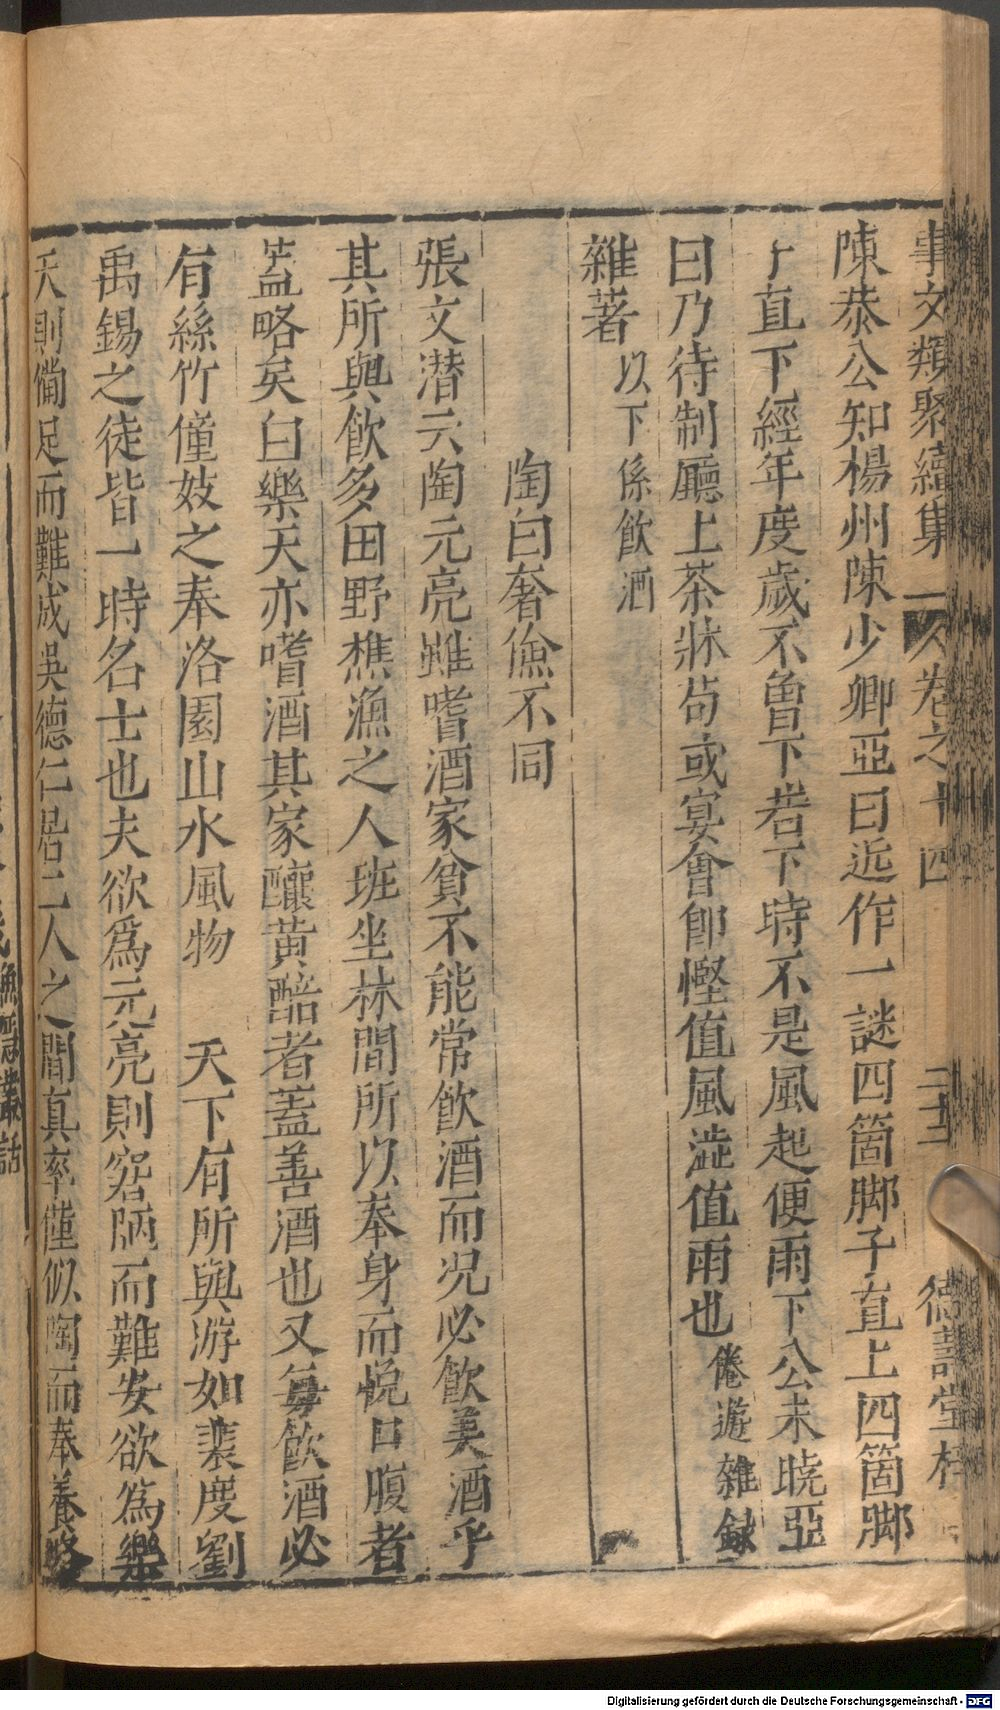 事文類聚續集 卷之十四 二十三 德壽堂梓
陳恭公知楊州陳少卿亞曰近作一謎四箇脚子直上四箇脚
子直下經年度歲不曽下若下時不是風起便雨下公未曉亞
曰乃待制廳上茶牀茍或宴會卽慳值風澁值雨也 倦遊雜録
雜著 以下係飲酒
陶白奢儉不同
張文潜云陶元亮雖嗜酒家貧不能常飲酒而况必飲美酒乎
其所與飲多田野樵漁之人班坐林間所以奉身而悅口腹者
盖略矣白樂天亦嗜酒其家釀黄醅者蓋善酒也又每飲酒必
有絲竹僮妓之奉洛園山水風物 天下有所與游如裴度劉
禹錫之徒皆一時名士也夫欲爲元亮則窘陋而難安欲爲樂
天則備足而難成吳德仁居二人之間真率僅似陶而奉養略
漁隱叢話
Digitalisierung gefördert durch die Deutsche Forschungsgemeinschaft - DFG